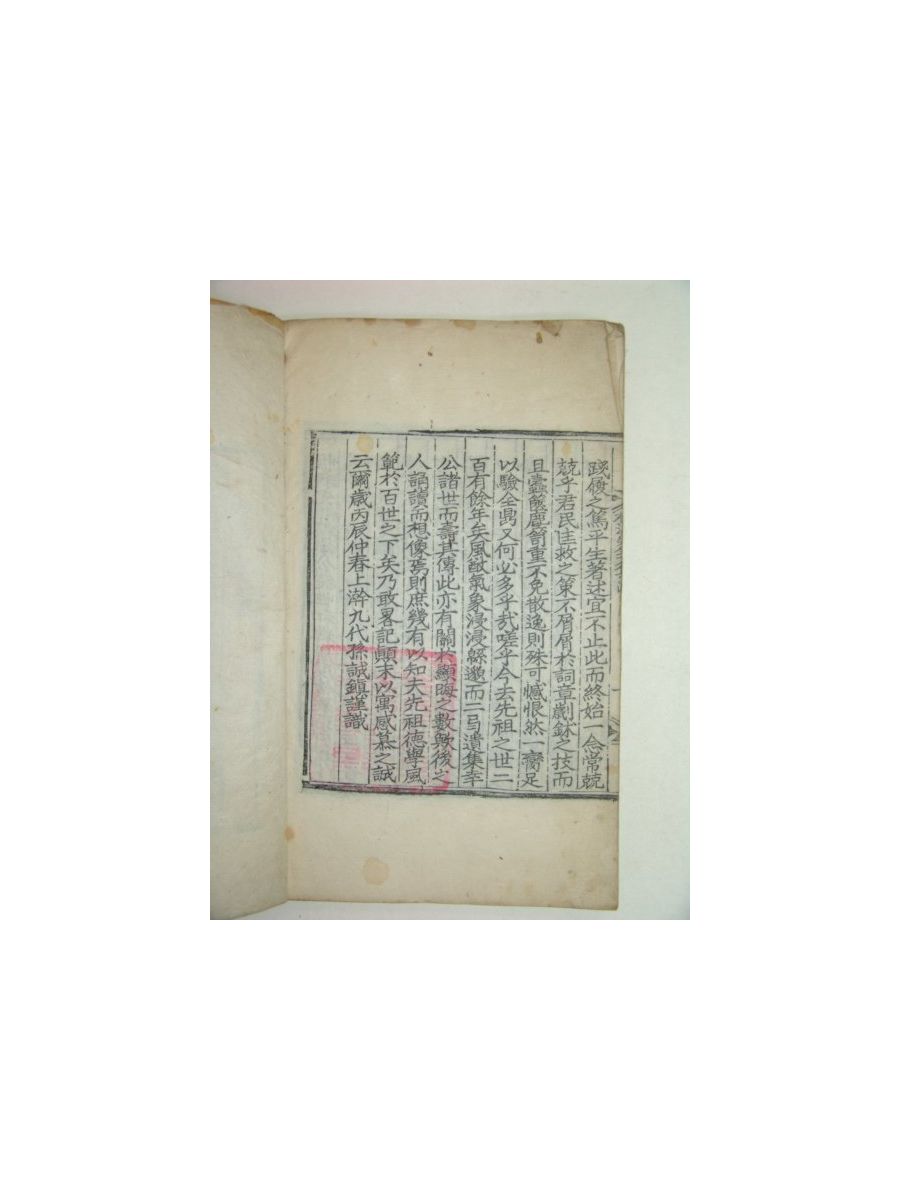 踐履之篤平生著述宜不止此而終始一念常兢
兢乎君民匡救之策不屑屑於詞章劌鉥之技而
且蠹蝕塵箱重不免散逸則殊可憾恨然一臠足
以驗全鼎又何必多乎哉嗟乎今去先祖之世二
百有餘年矣風猷氣象浸浸緜邈而二弓遺集幸
公諸世而壽其傳此亦有關於顯晦之數歟後之
人誦讀而想像焉則庶幾有以知夫先祖德學風
範於百世之下矣乃敢畧記顚末以寓感慕之誠
云爾歲丙辰仲春上澣九代孫誠鎮謹識